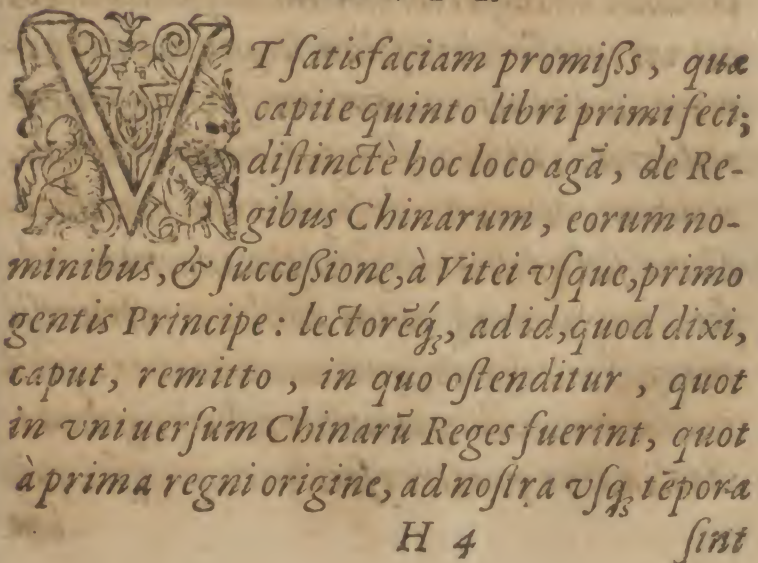 VT ſatisfaciam promiſſs, quæ
capite quinto libri primi feci;
diſtinctè hoc loco agā, de Re-
gibus Chinarum, eorum no-
minibus, & ſucceſſione, à Vitei vſque, primo
gentis Principe: lectorēq́₃, ad id, quod dixi,
caput, remitto, in quo oſtenditur, quot
in vniuerſum Chinarū Reges fuerint, quot
à prima regni origine, ad noſtra vſq₃ tēpora
H 4 ſint